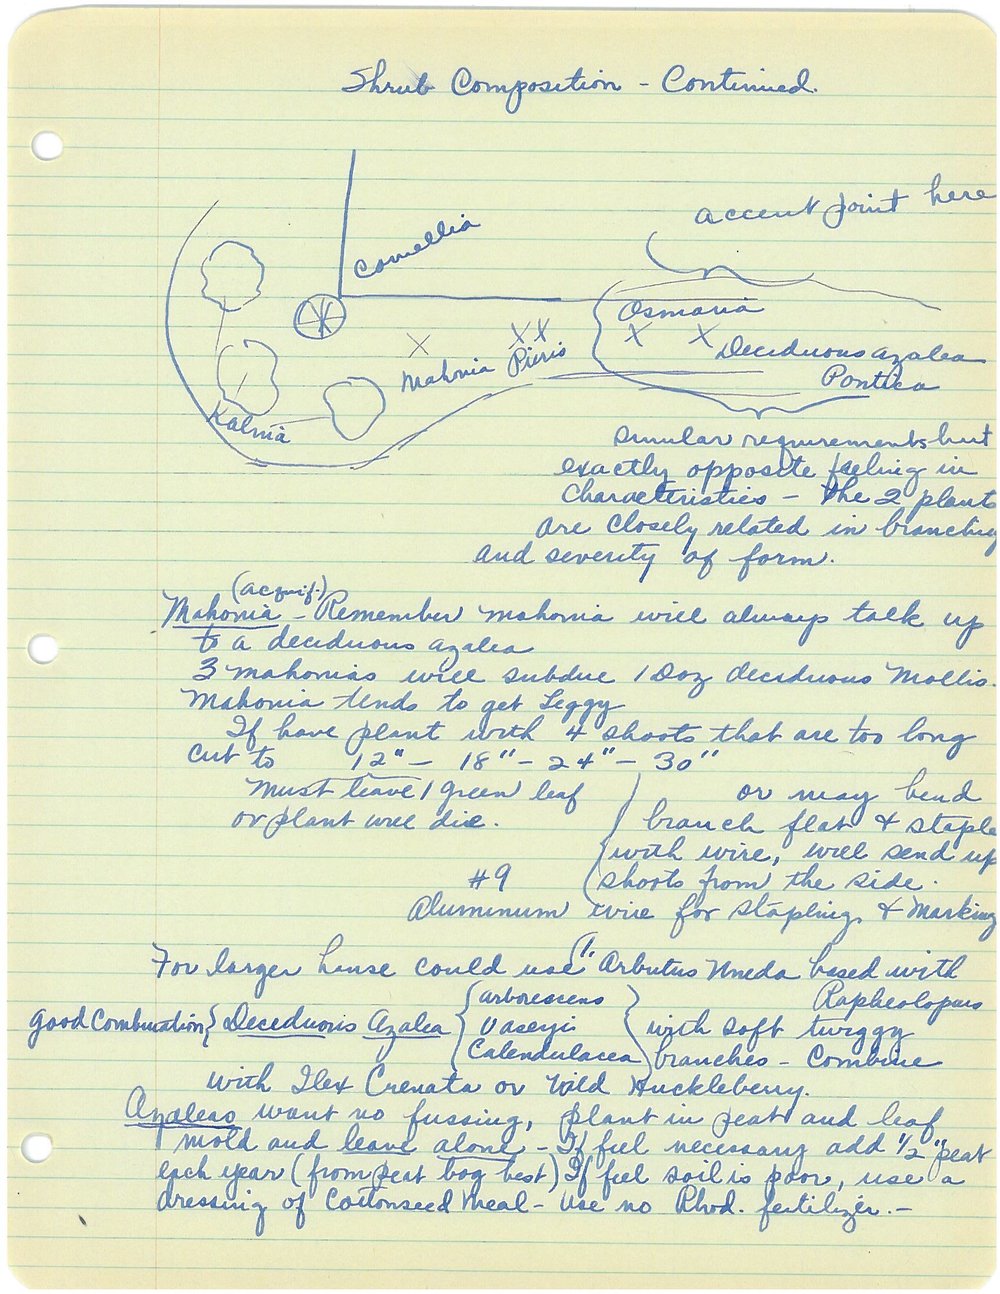 Shrub Composition - Continued.
accent point here
Camellia
Osmaria
Mahonia Pieris
Deciduous azalea
Pontica
Kalmia
similar requirements but
exactly opposite feeling in
characteristics - the 2 plants
are closely related in branching
and severity of form.
(acquif.)
Mahonia - Remember mahonia will always talk up
to a deciduous azalea
3 mahonias will subdue 1 Doz deciduous Mollis.
Mahonia tends to get Leggy
If have plant with 4 shoots that are too long
cut to 12" - 18" - 24" - 30"
Must leave 1 green leaf
or plant will die.
or may bend
branch flat & staple
with wire, will send up
shoots from the side.
#9
Aluminum wire for stapling & Marking
For larger house could use "Arbutus Uneda based with
Rapheolopus
Good Combination} Deciduous Azalea { arborescens
Vaseyi
Calendulacea } with soft twiggy
branches - Combine
with Ilex Crenata or Wild Huckleberry.
Azaleas want no fussing, plant in peat and leaf
mold and leave alone - If feel necessary add 1/2" peat
each year (from peat bog best) If feel soil is poor, use a
dressing of Cottonseed Meal - Use no Rhod. fertilizer. -